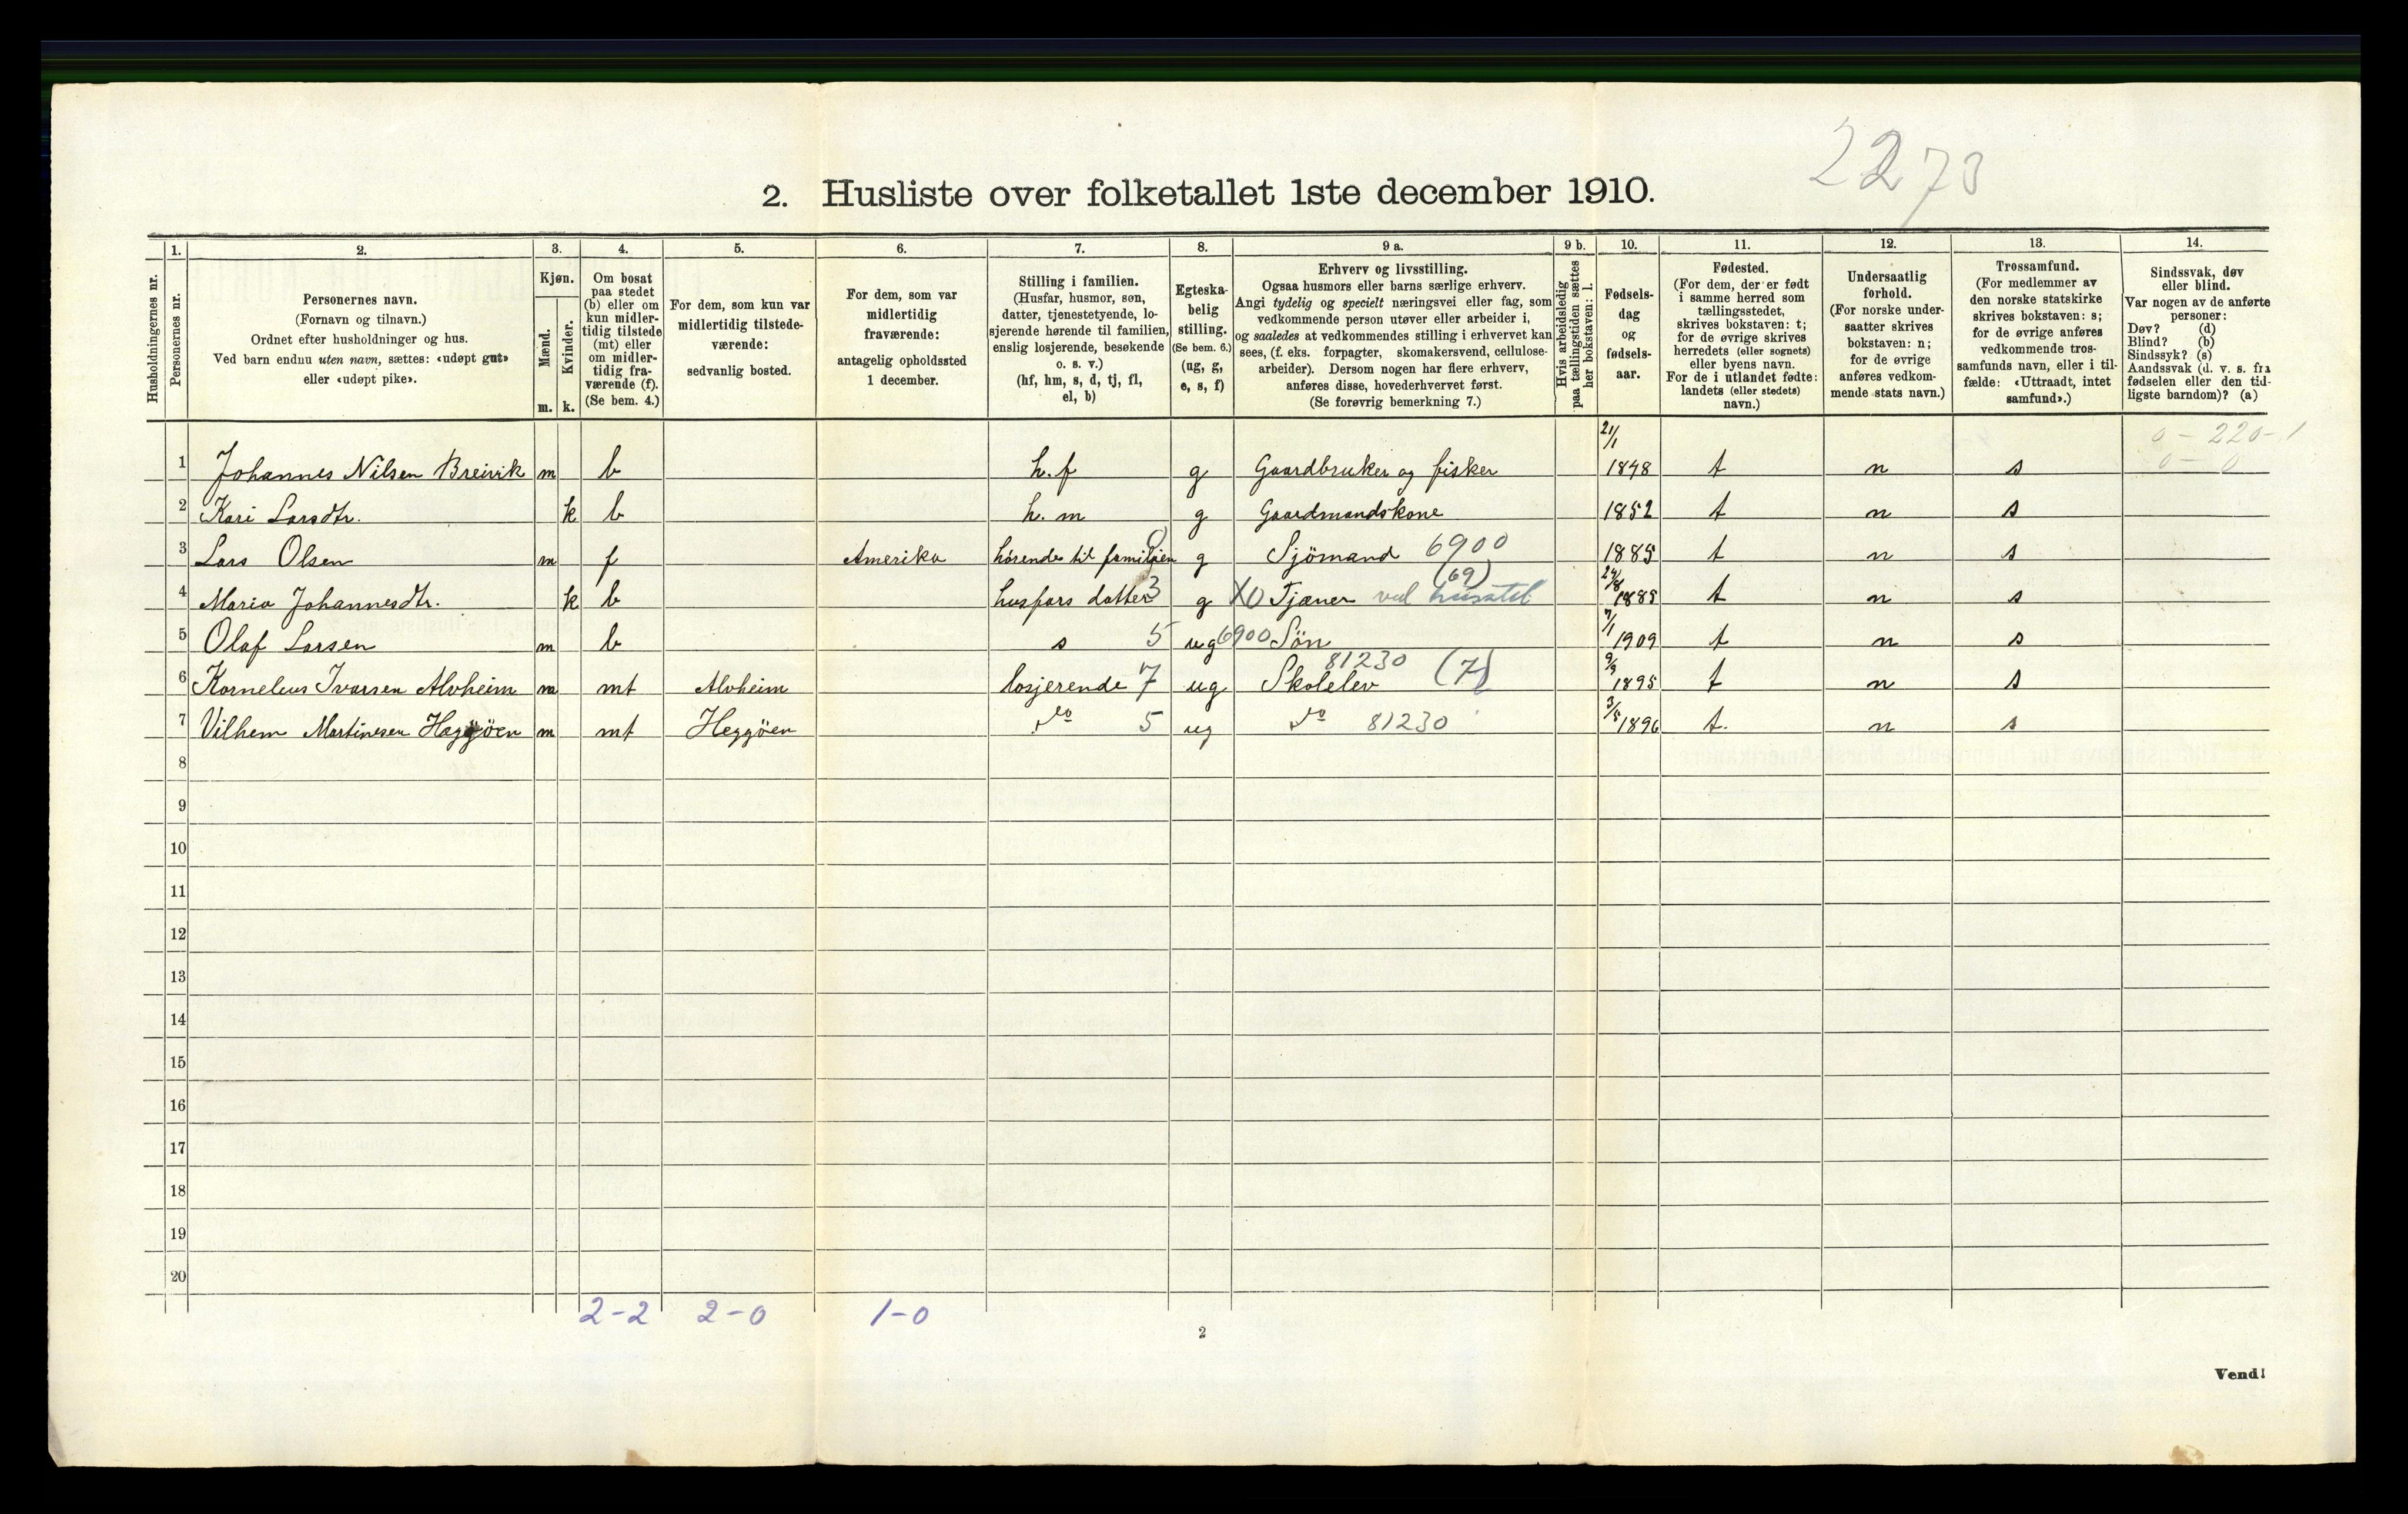 2273
2. Husliste over folketallet 1ste december 1910.
1. 2. 3. 4. 5. 6. 7. 8. 9 a. 9 b. 10. 11. 12. 13. 14.
Husholdningernes nr.
Personernes nr.
Personernes navn.
(Fornavn og tilnavn.)
Ordnet efter husholdninger og hus.
Ved barn endnu uten navn, sættes: «udøpt gut»
eller «udøpt pike».
Kjøn.
Mænd.
Kvinder.
m. k.
Om bosat
paa stedet
(b) eller om
kun midler-
tidig tilstede
(mt) eller
om midler-
tidig fra-
værende (f).
(Se bem. 4.)
For dem, som kun var
midlertidig tilstede-
værende:
sedvanlig bosted.
For dem, som var
midlertidig
fraværende:
antagelig opholdssted
1 december.
Stilling i familien.
(Husfar, husmor, søn,
datter, tjenestetyende, lo-
sjerende hørende til familien,
enslig losjerende, besøkende
o. s. v.)
(hf, hm, s, d, tj, fl,
el, b)
Egteska-
belig
stilling.
(Se bem. 6.)
(ug, g,
e, s, f)
Erhverv og livsstilling.
Ogsaa husmors eller barns særlige erhverv.
Angi tydelig og specielt næringsvei eller fag, som
vedkommende person utøver eller arbeider i,
og saaledes at vedkommendes stilling i erhvervet kan
sees, (f. eks. forpagter, skomakersvend, cellulose-
arbeider). Dersom nogen har flere erhverv,
anføres disse, hovederhvervet først.
(Se forøvrig bemerkning 7.)
Hvis arbeidsledig
paa tællingstiden sættes
her bokstaven: l.
Fødsels-
dag
og
fødsels-
aar.
Fødested.
(For dem, der er født
i samme herred som
tællingsstedet,
skrives bokstaven: t;
for de øvrige skrives
herredets (eller sognets)
eller byens navn.
For de i utlandet fødte:
landets (eller stedets)
navn.)
Undersaatlig
forhold.
(For norske under-
saatter skrives
bokstaven: n;
for de øvrige
anføres vedkom-
mende stats navn.)
Trossamfund.
(For medlemmer av
den norske statskirke
skrives bokstaven: s;
for de øvrige anføres
vedkommende tros-
samfunds navn, eller i til-
fælde: «Uttraadt, intet
samfund».)
Sindssvak, døv
eller blind.
Var nogen av de anførte
personer:
Døv? (d)
Blind? (b)
Sindssyk? (s)
Aandssvak (d. v. s. fra
fødselen eller den tid-
ligste barndom)? (a)
0 - 220 - 1
0 - 0
1 Johannes Nilsen Breivik m b h.f g Gaardbruker og fisker 21/1 1848 t n s
2 Kari Larsdtr. k b h. m g Gaardmandskone 1852 t n s
3 Lars Olsen m f Amerika hörende til familien 0 g Sjömand 6900 1885 t n s
4 Maria Johannesdtr. k b husfars datter 3 g X0 Tjæner ved husstel (69) 24/8 1885 t n s
5 Olaf Larsen m b s 5 ug 6900 Sön 7/1 1909 t n s
6 Kornelius Ivarsen Alvheim m mt Alvheim losjerende 7 ug Skolelev 81230 (7) 9/9 1895 t n s
7 Vilhem Martinesen Heggöen m mt Heggöen do 5 ug do 81230 3/5 1896 t. n s
8
9
10
11
12
13
14
15
16
17
18
19
20
2-2 2-0 1-0
2
Vend!